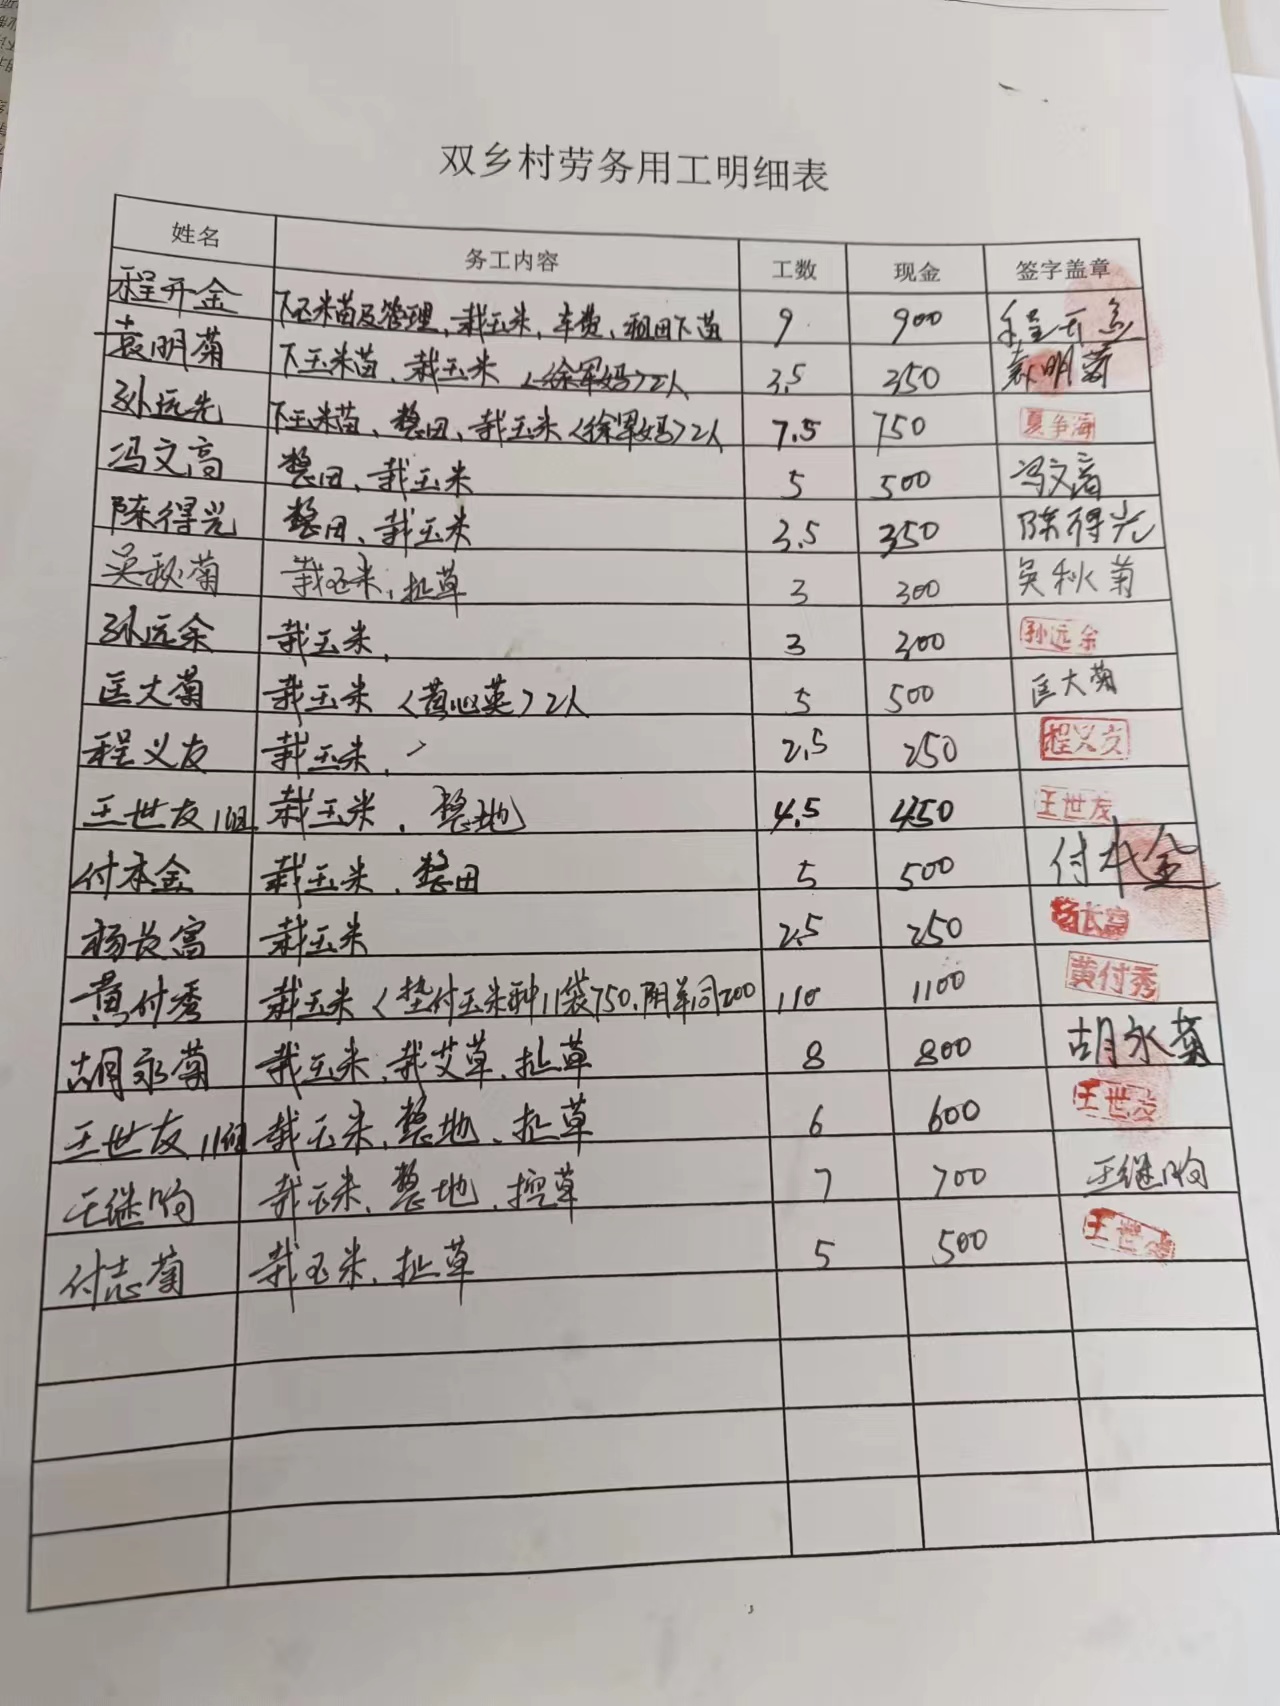 双乡村劳务用工明细表
姓名 务工内容 工数 现金 签字盖章
程开金 下玉米苗及管理、栽玉米、车费、租田下苗 9 900 程开金
袁明菊 下玉米苗、栽玉米〈徐军妈〉2人 3.5 350 袁明菊
孙远先 下玉米苗、整田、栽玉米〈徐军妈〉2人 7.5 750 夏争海
冯文高 整田、栽玉米 5 500 冯文高
陈得光 整田、栽玉米 3.5 350 陈得光
吴秋菊 栽玉米、扯草 3 300 吴秋菊
孙远余 栽玉米、 3 300 孙远余
匡大菊 栽玉米〈黄心英〉2人 5 500 匡大菊
程义友 栽玉米、 2.5 250 程义友
王世友1组 栽玉米、整地 4.5 450 王世友
付本金 栽玉米、整田 5 500 付本金
杨长富 栽玉米 2.5 250 杨长富
黄付秀 栽玉米〈垫付玉米种11袋750、阴羊同200 110 1100 黄付秀
胡永菊 栽玉米、栽艾草、扯草 8 800 胡永菊
王世友11组 栽玉米、整地、扯草 6 600 王世友
王继响 栽玉米、整地、挖草 7 700 王继响
付志菊 栽玉米、扯草 5 500 王世